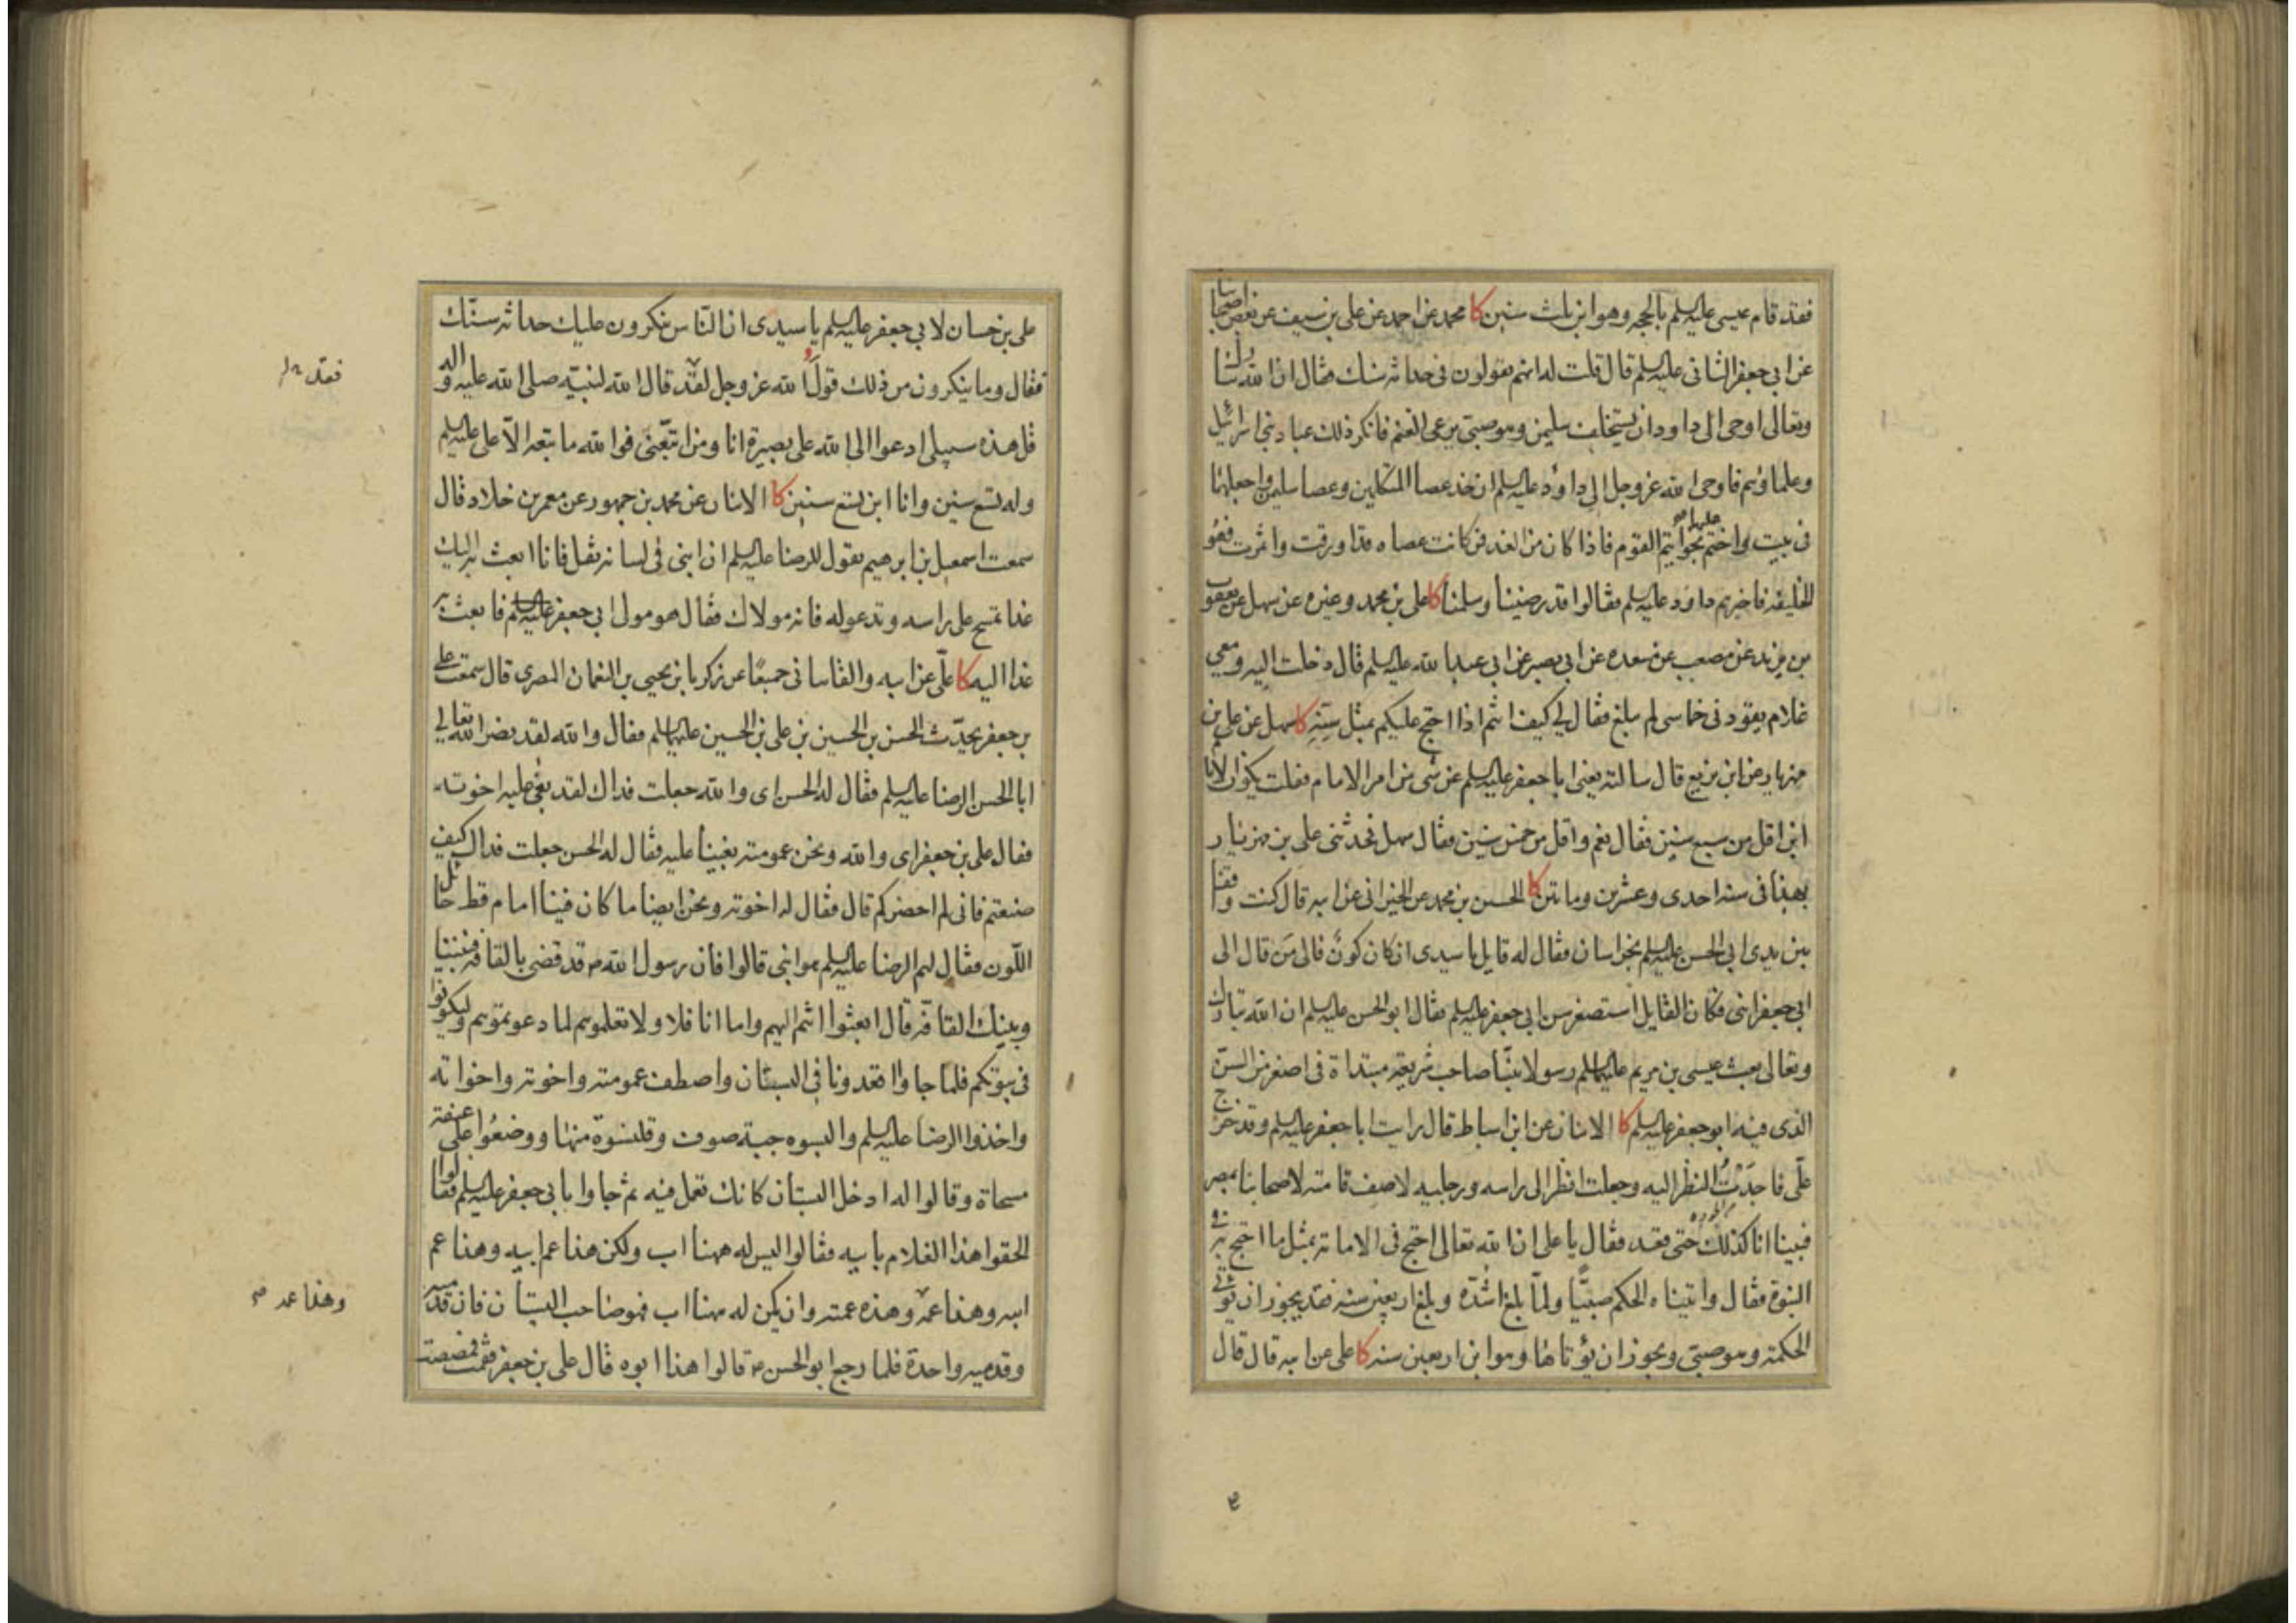 فقد قام عيسى عليه السلم بالحجه وهو ابن ثلث سنين كا محمد عن احمد عن على بن سيف عن بعض اصحابنا
عن ابى جعفر الثانى عليه السلم قال قلت له انهم يقولون فى حداثه سنك فقال ان الله تبارك
وتعالى اوحى الى داود ان يستخلف سليمن وهو صبى يرعى الغنم فانكر ذلك عباد بنى اسرائيل
وعلماؤهم فاوحى الله عز وجل الى داؤد عليه السلم ان خذ عصا المتكلمين وعصا سليمن واجعلهما
فى بيت واختم عليها بخواتيم القوم فاذا كان من الغد فمن كانت عصاه قد اورقت واثمرت فهو
الخليفه فاخبرهم داود عليه السلم فقالوا قد رضينا وسلمنا كا على بن محمد وغيره عن سهل عن يعقوب
بن يزيد عن مصعب عن مسعده عن ابى بصير عن ابى عبد الله عليه السلم قال دخلت اليه ومعى
غلام يقودنى خماسى لم يبلغ فقال لى كيف انتم اذا احتج عليكم بمثل سنه كا سهل عن على بن
مهزيار عن ابن بزيع قال سالته يعنى ابا جعفر عليه السلم عن شى من امر الامام فقلت يكون الامام
ابن اقل من سبع سنين فقال نعم واقل من خمس سنين فقال سهل فحدثنى على بن مهزيار
بهذا فى سنه احدى وعشرين وماتين كا الحسين بن محمد عن الخيرانى عن ابيه قال كنت واقفا
بين يدى ابى الحسن عليه السلم بخراسان فقال له قايل يا سيدى ان كان كون فالى من قال الى
ابى جعفر ابنى فكان القايل استصغر سن ابى جعفر عليه السلم فقال ابو الحسن عليه السلم ان الله تبارك
وتعالى بعث عيسى بن مريم عليهما السلم رسولا نبيا صاحب شريعه مبتداة فى اصغر من السن
الذى فيه ابو جعفر عليه السلم كا الاثنان عن ابن اسباط قال رايت ابا جعفر عليه السلم وقد خرج
على فاجدت النظر اليه وجعلت انظر الى راسه ورجليه لاصف قامته لاصحابنا بمصر
فبينا انا كذلك حتى قعد فقال يا على ان الله تعالى احتج فى الامامه بمثل ما احتج به فى
النبوة فقال واتيناه الحكم صبيا ولما بلغ اشده وبلغ اربعين سنه فقد يجوز ان يؤتى
الحكمه وهو صبى ويجوز ان يؤتاها وهو ابن اربعين سنه كا على عن ابيه قال قال
على بن حسان لابى جعفر عليه السلم يا سيدى ان الناس ينكرون عليك حداثه سنك
فقال وما ينكرون من ذلك قول الله عز وجل لقد قال الله لنبيه صلى الله عليه واله
قل هذه سبيلى ادعوا الى الله على بصيرة انا ومن اتبعنى فوالله ما تبعه الا على عليه السلم
وله تسع سنين وانا ابن تسع سنين كا الاثنان عن محمد بن جمهور عن معمر بن خلاد قال
سمعت اسمعيل بن ابرهيم يقول للرضا عليه السلم ان ابنى فى لسانه ثقل فانا ابعث به اليك
غدا تمسح على راسه وتدعو له فانه مولاك فقال هو مولى ابى جعفر عليه السلم فابعث به
غدا اليه كا على عن ابيه والقاسانى جميعا عن زكريا بن يحيى بن النعمان المصرى قال سمعت على
بن جعفر يحدث الحسن بن الحسين بن على بن الحسين عليهما السلم فقال والله لقد نصر الله تعالى
ابا الحسن الرضا عليه السلم فقال له الحسن اى والله جعلت فداك لقد بغى عليه اخوته
فقال على بن جعفر اى والله ونحن عمومته بغينا عليه فقال له الحسن جعلت فداك كيف
صنعتم فانى لم احضركم قال فقال له اخوته ونحن ايضا ما كان فينا امام قط حائل
اللون فقال لهم الرضا عليه السلم هو ابنى قالوا فان رسول الله ص قد قضى بالقافه فبيننا
وبينك القافه قال ابعثوا انتم اليهم واما انا فلا ولا تعلموهم لما دعوتموهم وليكونوا
فى بيوتكم فلما جاوا اقعدونا فى البستان واصطف عمومته واخوته واخواته
واخذوا الرضا عليه السلم والبسوه جبة صوف وقلنسوة منها ووضعوا على عنقه
مسحاة وقالوا له ادخل البستان كانك تعمل فيه ثم جاوا بابى جعفر عليه السلم فقالوا
الحقوا هذا الغلام بابيه فقالوا ليس له ههنا اب ولكن هذا عم ابيه وهذا عم
ابيه وهذا عمه وهذه عمته وان يكن له ههنا اب فهو صاحب البستان فان قدميه
وقدميه واحدة فلما رجع ابو الحسن ع قالوا هذا ابوه قال على بن جعفر فقمت فمصصت
فقد
وهذا عمه صح